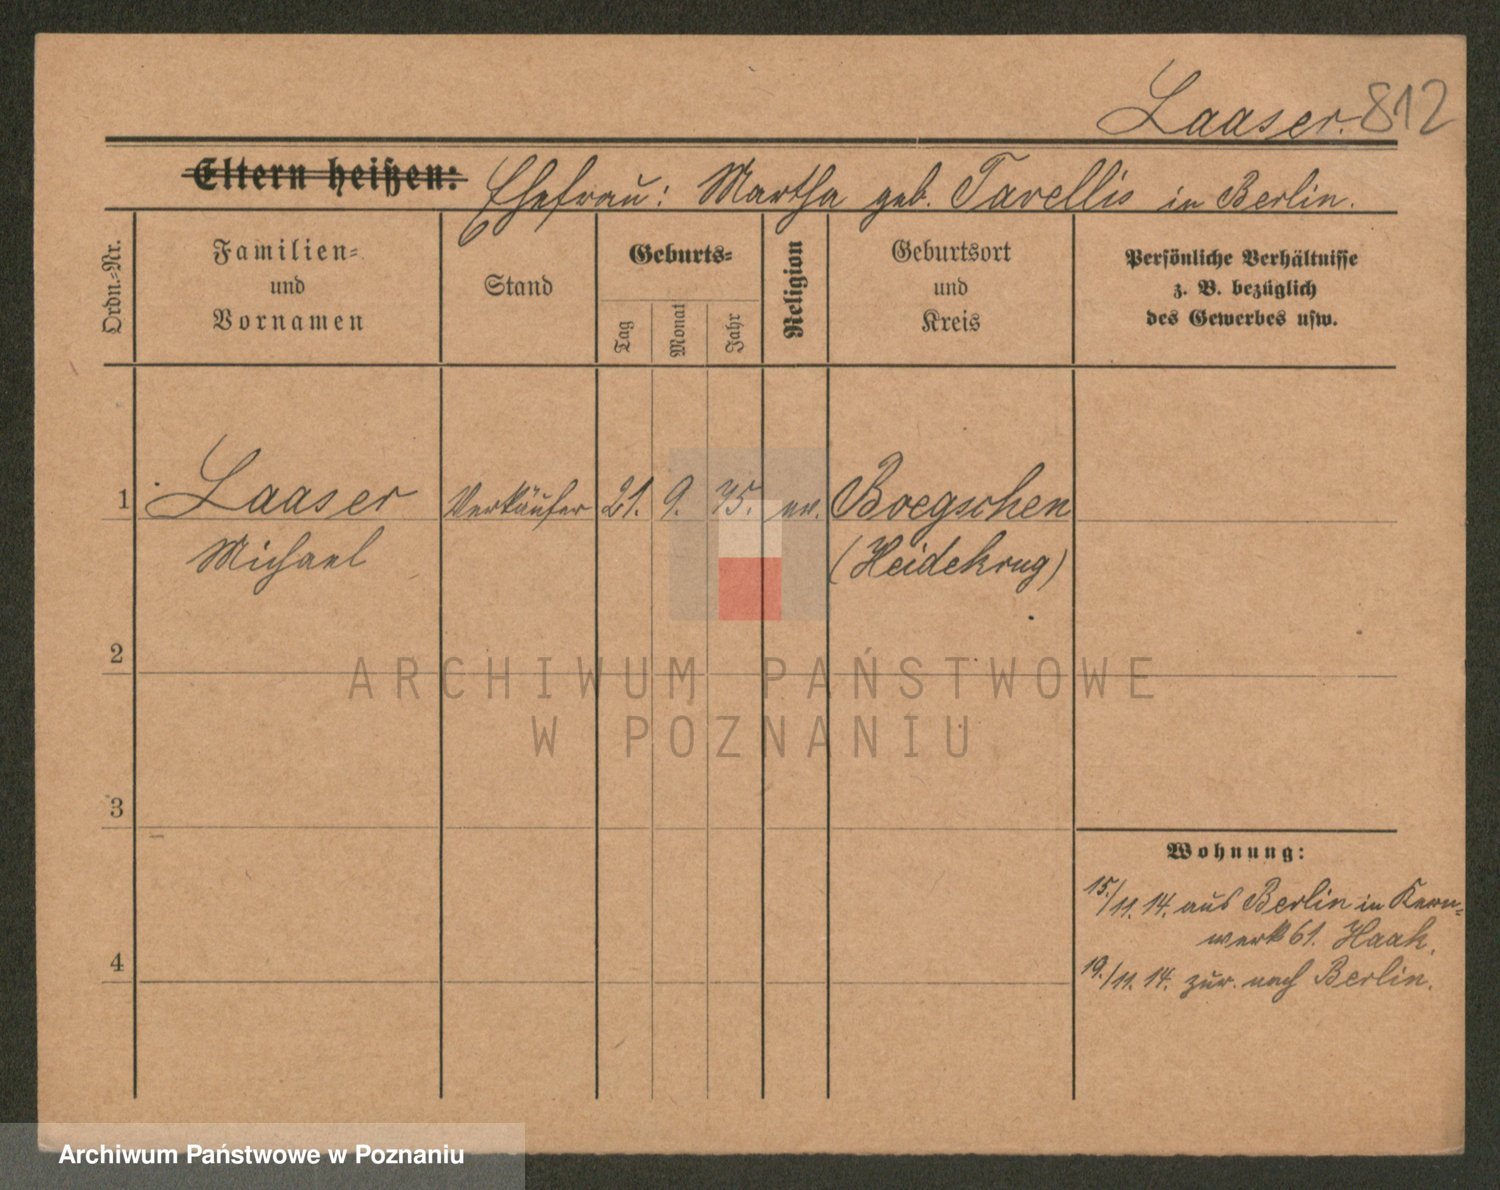 Laaser. 812
Eltern heißen: Ehefrau: Martha geb. Tarellis in Berlin.
Ordn.-Nr.
Familien-
und
Vornamen
Stand
Geburts-
Tag
Monat
Jahr
Religion
Geburtsort
und
Kreis
Persönliche Verhältnisse
z. B. bezüglich
des Gewerbes usw.
1 Laaser Verkäufer 21. 9. 75. ev. Boegschen
Michael (Heidekrug)
2
3
4
Wohnung:
15./11. 14. aus Berlin in Kern-
werk 61. Haak.
19./11. 14. zur. nach Berlin.
ARCHIWUM PAŃSTWOWE
W POZNANIU
Archiwum Państwowe w Poznaniu